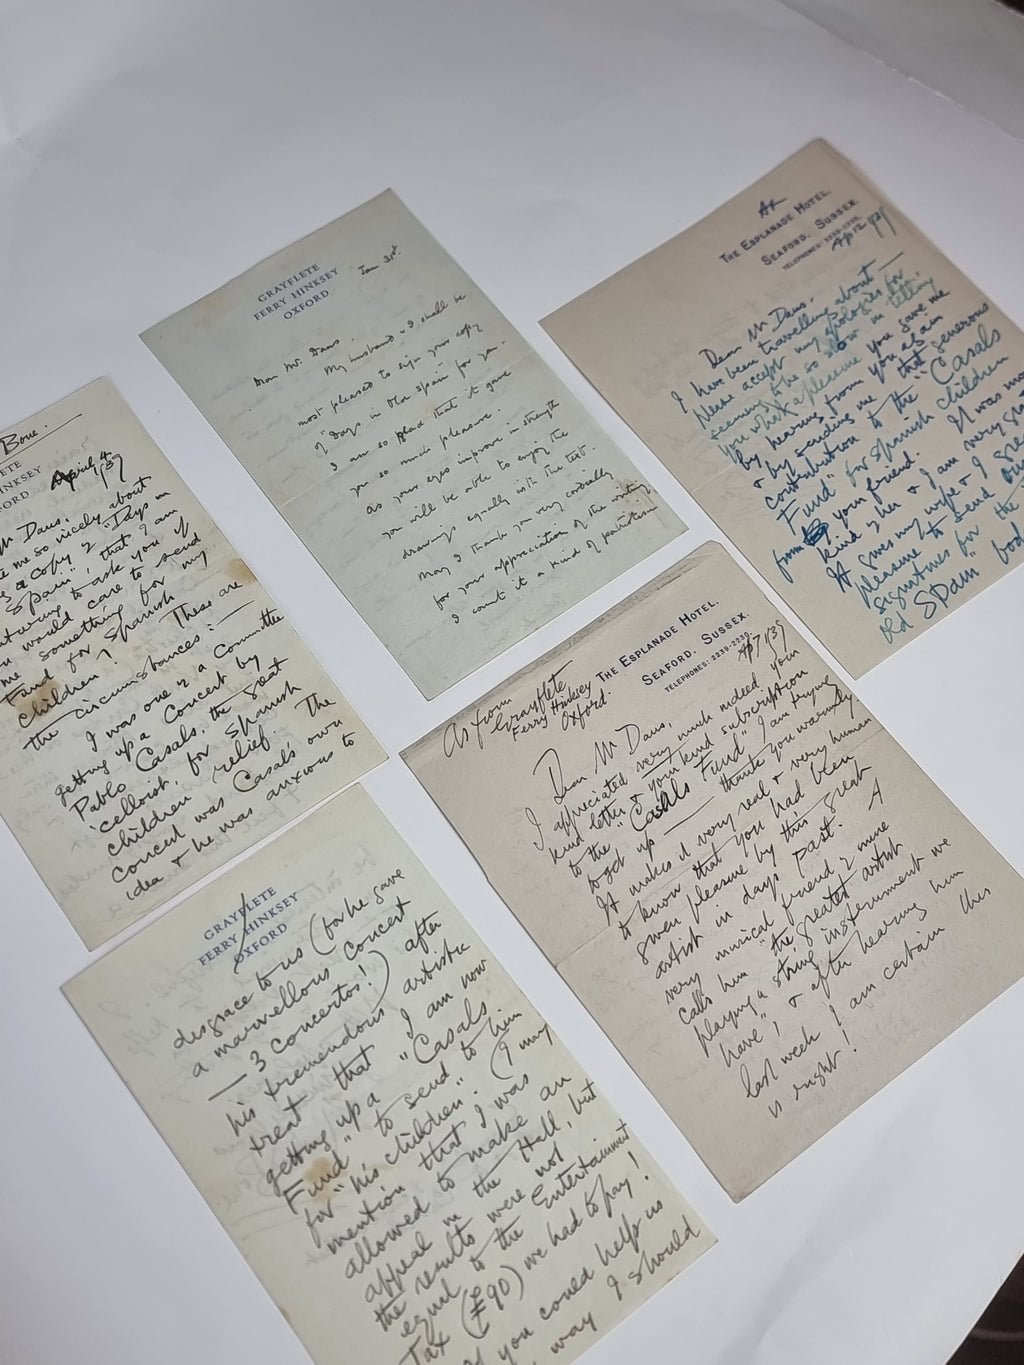 GRAYFLETE
FERRY HINKSEY
OXFORD
Jan 31st.
Dear Mr. Daus.
My husband & I shall be
most pleased to sign your copy
of "Days in Old Spain" for you.
I am so glad that it gave
you so much pleasure.
As your eyes improve in strength
you will be able to enjoy the
drawings equally with the text.
May I thank you very cordially
for your appreciation of the writing
I count it a kind of patriotism
THE ESPLANADE HOTEL,
SEAFORD, SUSSEX.
TELEPHONES: 2239-2239.
Ap 12 1939
Dear Mr Daus.
I have been travelling about —
please accept my apologies for
seeming to be so slow in telling
you what a pleasure you gave me
by hearing from you again
& by sending me that generous
contribution to the "Casals
Fund" for Spanish children
from your friend. It was most
kind of her & I am very
It gives my wife & I
pleasure to send our
signatures for the
Old Spain"
Bone.
FLETE
HINKSEY
FORD
April 4
1939
Mr Daus.
me so nicely about
a copy of "Days in
Spain", that I am
venturing to ask you if
you would care to send
me something for my
Fund for Spanish
children? These are
the circumstances:—
I was one of a Committee
getting up a Concert by
Pablo Casals, the great
'celloist, for Spanish
children relief. The
Concert was Casals's own
idea & he was anxious to
THE ESPLANADE HOTEL,
SEAFORD, SUSSEX.
TELEPHONES: 2239-2239.
Ap 7 1939
As from
Grayflete
Ferry Hinksey
Oxford.
Dear Mr Daus,
I appreciated very much indeed your
kind letter & your kind subscription
to the "Casals Fund" I am trying
to get up — thank you warmly
It makes it very real & very human
to know that you had been
given pleasure by this great
artist in days past. A
very musical friend of mine
calls him "the greatest artist
playing a string instrument we
have", & after hearing him
last week I am certain this
is right!
GRAYFLETE
FERRY HINKSEY
OXFORD
disgrace to us (for he gave
a marvellous Concert
— 3 concertos!) after
his tremendous artistic
treat that I am now
getting up a "Casals
Fund" to send to him
for "his children". (I may
mention that I was
allowed to make an
appeal in the Hall, but
the results were not
equal to the Entertainment
Tax (£90) we had to pay!
If you could help us
way I should